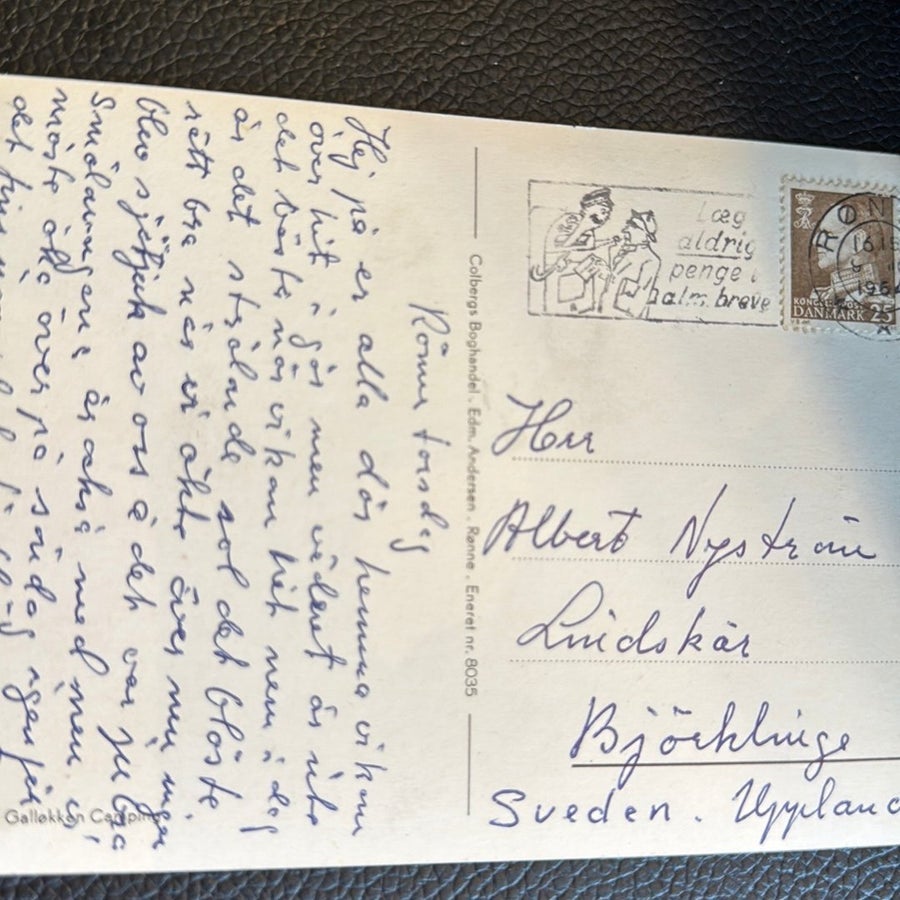 Rönne torsdag
Hej på er alla där hemma vi kom
över hit i går men vädret är inte
det bästa när vi kom hit men i dag
är det strålande sol det blåste
rätt bra när vi åkte över men ingen
blev sjösjuk av oss å det var ju bra
Smålänningene är också med men vi
måste åka över på söndag igen för
det finns
Galløkken Camping
Colbergs Boghandel . Edm. Andersen . Rønne . Eneret nr. 8035
Læg
aldrig
penge i
alm. breve
RØN
16.15
1964
KONGE
DANMARK 25
Herr
Albert Nyström
Lindskär
Björklinge
Sveden. Uppland